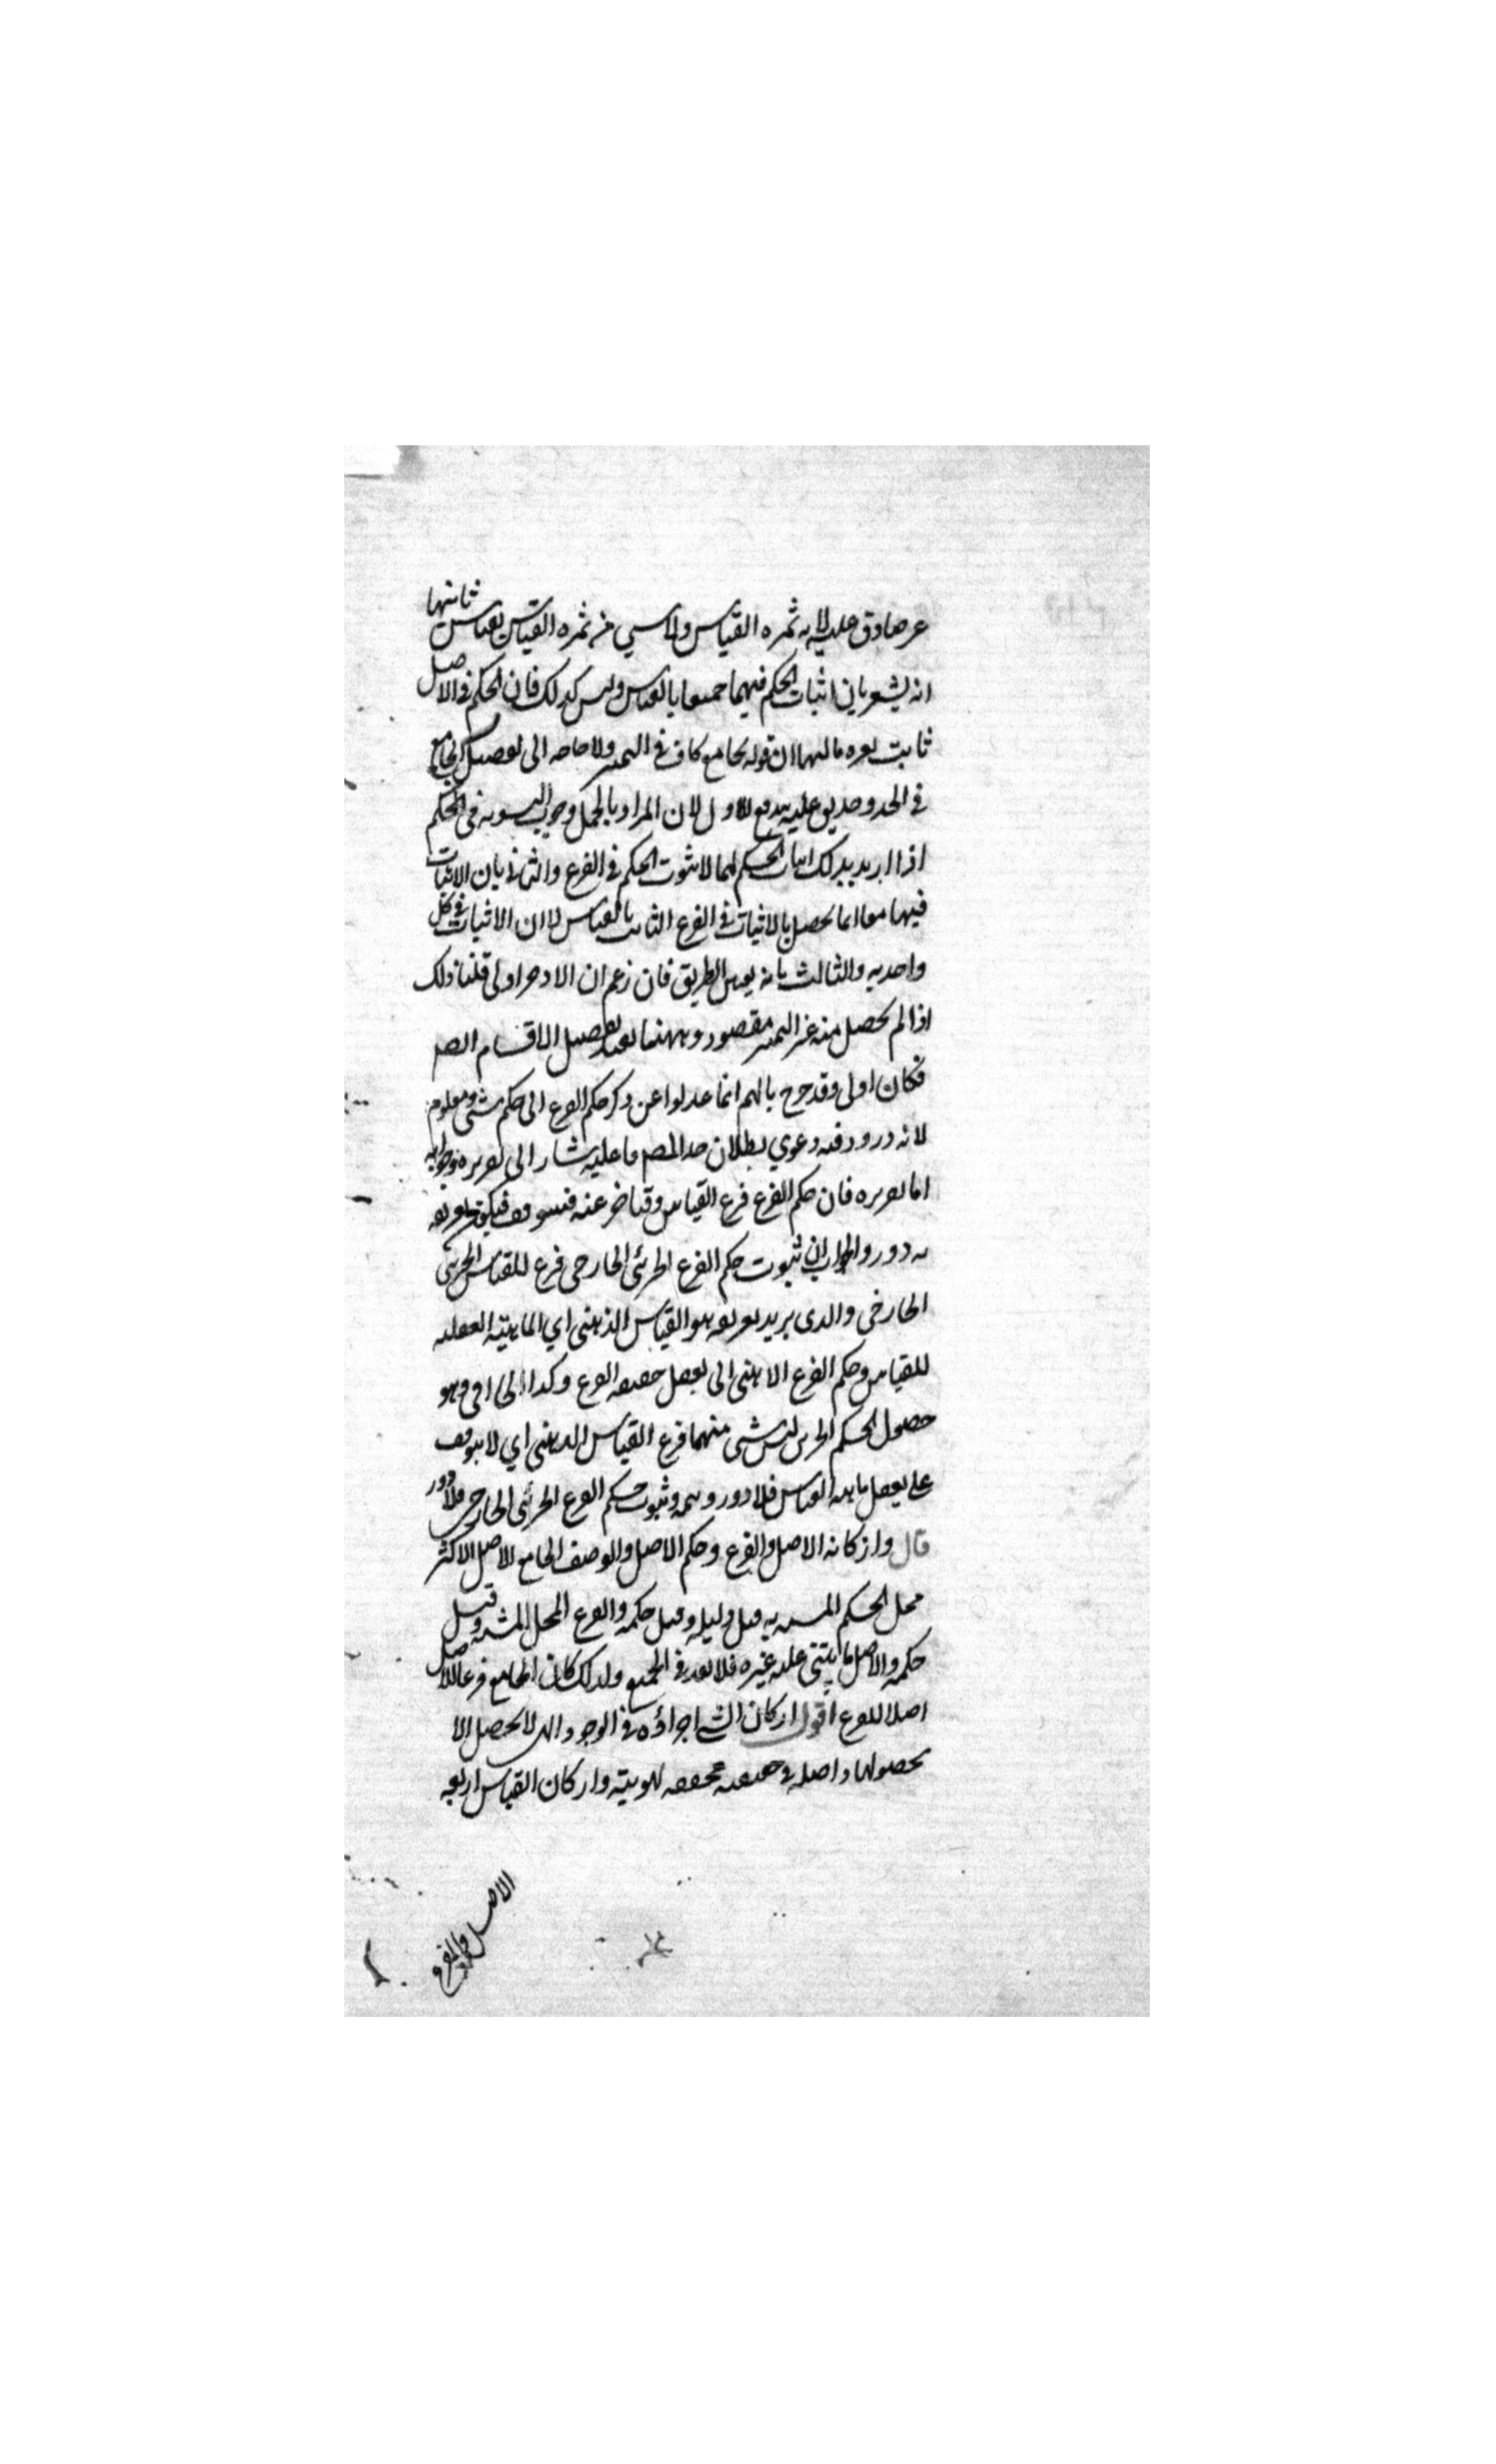 غير صادق عليه لانه ثمرة القياس ولا شيء من ثمرة القياس بقياس ثانيها
انه يشعر بان اثبات الحكم فيهما جميعا بالقياس وليس كذلك فان الحكم في الاصل
ثابت بغيره ثالثها ان قوله بجامع كاف في التمييز ولا حاجة الى تفصيل الجامع
في الحد وصدق عليه يدفع الاول لان المراد بالحمل وجوب التسوية في الحكم
اذا اريد بذلك اثبات الحكم لهما لا ثبوت الحكم في الفرع والثاني بان الاثبات
فيهما معا انما يحصل بالاثبات في الفرع الثابت بالقياس لا ان الاثبات في كل
واحد به والثالث بانه يعين الطريق فان زعم ان الاوجز اولى قلنا ذلك
اذا لم يحصل منه غير التمييز مقصود وههنا يفيد تفصيل الاقسام ايضا
فكان اولى وقد صرح بانهم انما عدلوا عن ذكر حكم الفرع الى حكم شيء ومعلوم
لانه دور وفيه دعوى بطلان حد المص ما عليه اشار الى تقريره وجوابه
اما تقريره فان حكم الفرع فرع القياس وقد اخر عنه فيتوقف فيكون تعريفه
به دور والجواب ان ثبوت حكم الفرع الجزئي الخارجي فرع للقياس الجزئي
الخارجي والذي يريد تعريفه هو القياس الذهني اي الماهية العقلية
للقياس وحكم الفرع الذهني اي تعقل حقيقة الفرع وكذا الخارجي وهو
حصول الحكم الجزئي ليس شي منهما فرع القياس الذهني اي لا يتوقف
على تعقل ماهية القياس فلا دور وثبوت حكم الفرع الجزئي الخارجي فلا دور
قال واركانه الاصل والفرع وحكم الاصل والوصف الجامع الاصل الاكثر
محل الحكم المشبه به وقيل دليله وقيل حكمه والفرع المحل المشبه وقيل
حكمه والاصل ما يبتنى عليه غيره فلا بعد في الجميع ولذلك كان الجامع فرعا للاصل
اصلا للفرع اقول اركان الشي اجزاؤه في الوجود التي لا يحصل الا
بحصولها داخلة في حقيقته محققة لهويته واركان القياس اربعة
الاصل والفرع